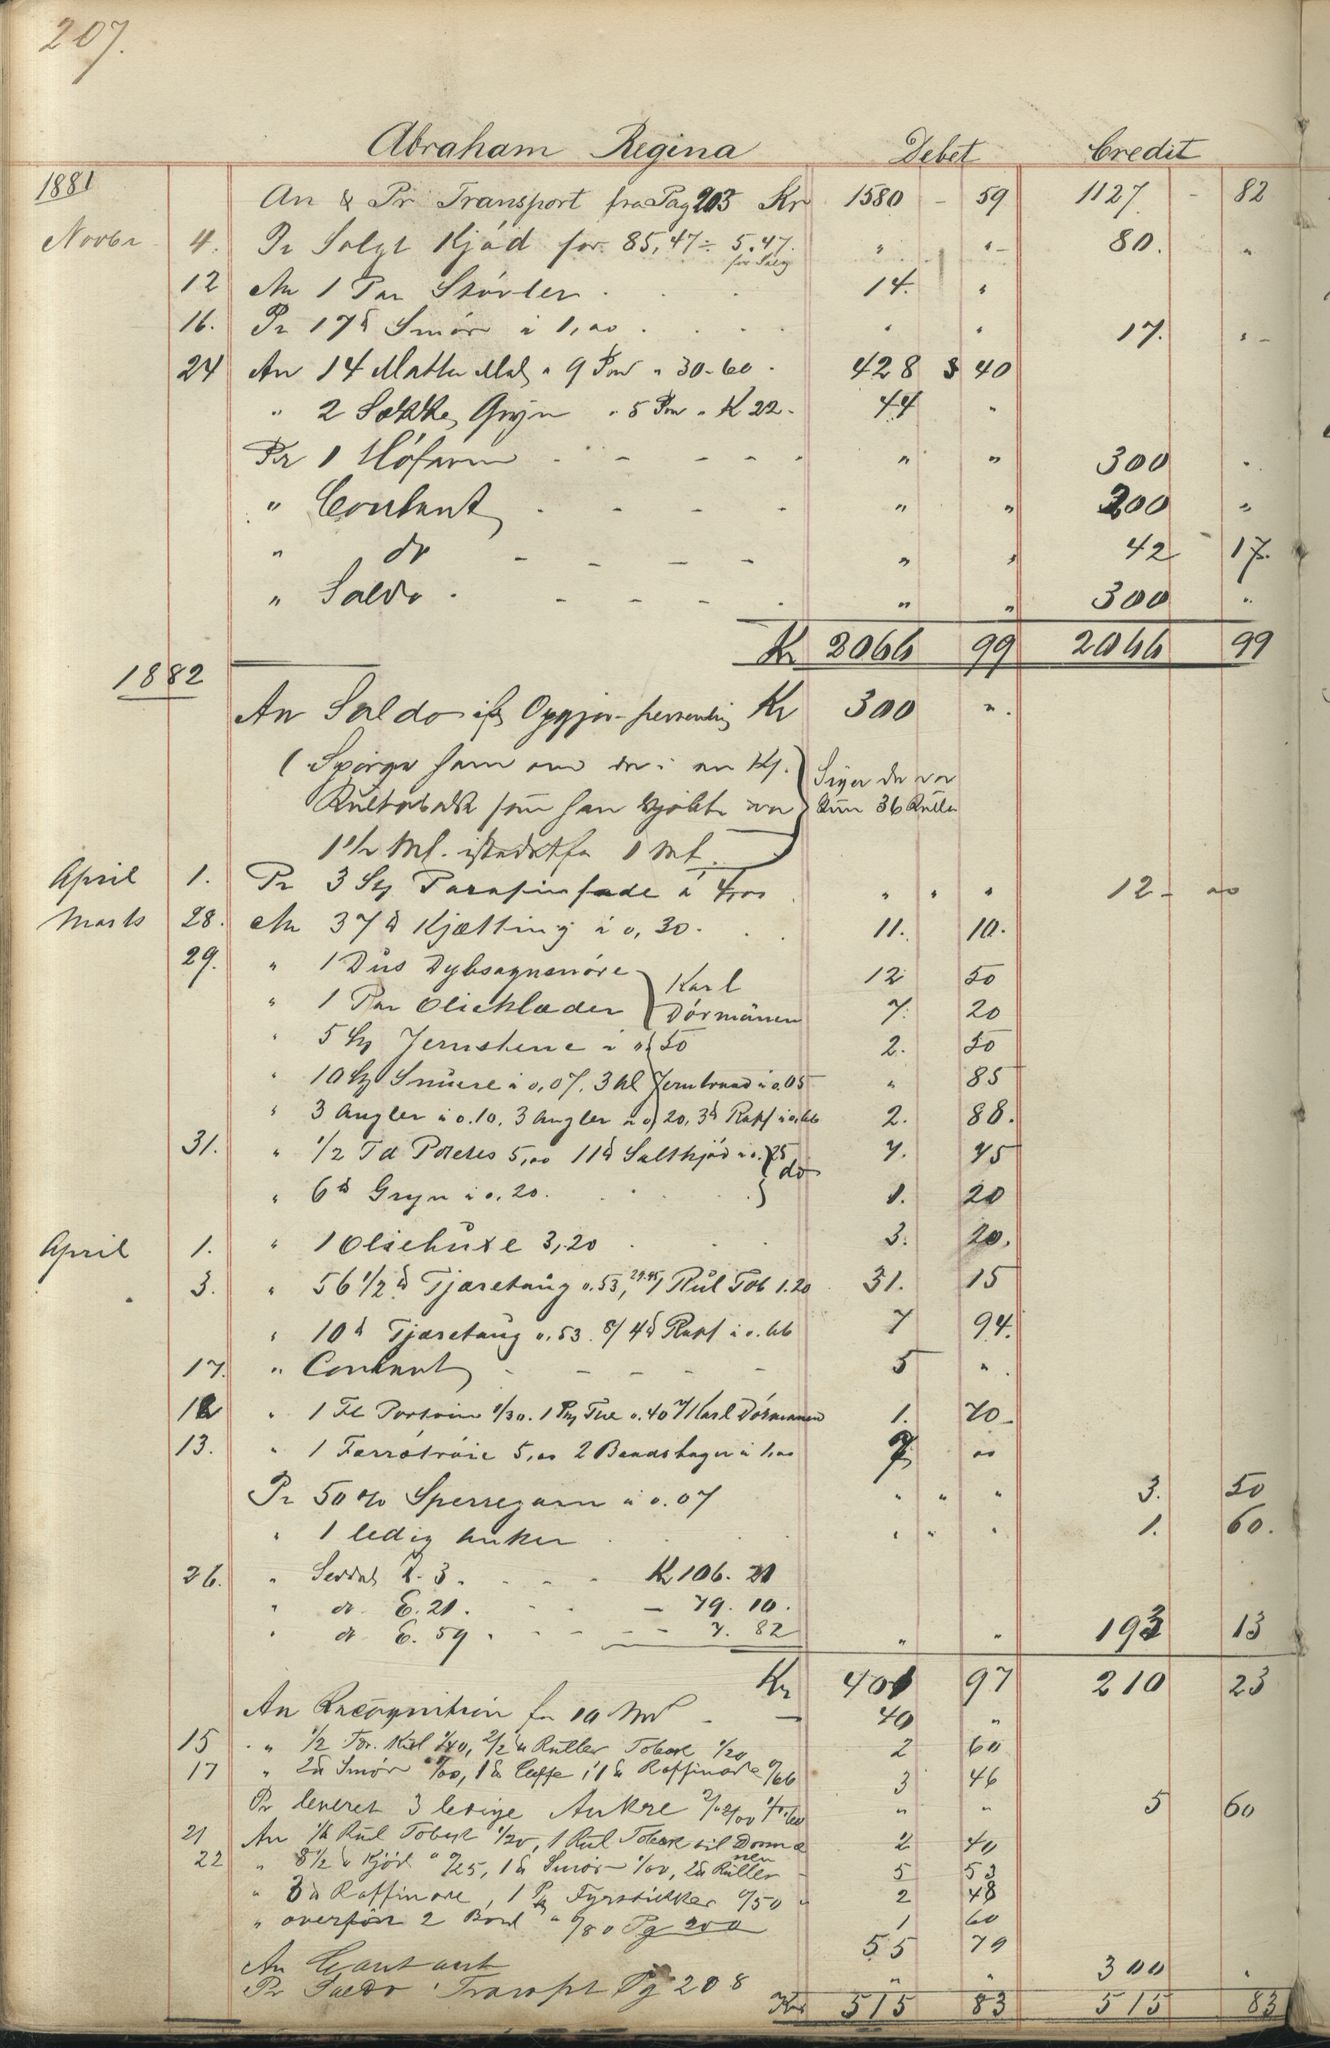 207.
Abraham Regina Debet Credit
1881 An & Pr Transport fra Pag 203 Kr 1580 - 59 1127 - 82
Novbr 4. Pr Solgt Kjød for 85,47 ÷ 5.47. " " 80. "
for Salg
12 An 1 Par Støvler 14. "
16. Pr 17 ℔ Smør à 1,00 " " 17. "
24 An 14 Matter Mel " 9 Pud " 30-60 428 40
" 2 Sække Gryn " 5 Pud " K 22- 44 "
Pr 1 " " 300 "
" Contant " " 200 "
" do " " 42 17.
" Saldo " " 300 "
Kr 2066 99 2066 99
1882
An Saldo Opgjør personlig Kr 300 "
( Spørge ham om der i en Kf.
Siger der var
Rultobak som han kjøbte var
kun 36 Ruller
1½ istedetfor 1
April 1. Pr 3 St Parafinfade à 4,00 " " " 12 - 00
Marts 28. An 37 ℔ Kjætting à 0,30 11. 10.
29. " 1 Dus Dybsagnsnøre 12 50
Karl
" 1 Par Olieklæder Dørmænen 7. 20
" 5 St Jernstene à 0,50 2. 50
" 10 St Snuere à 0,07. 3 Al Jerntraad à 0.05 " 85
" 3 Angler à 0.10, 3 Angler à 0,20, 3 ℔ Raff à 0,66 2. 88.
31. " 1/2 Td Potetes 5,00 11 ℔ Saltkjød à 0.25 do 7. 75
" 6 ℔ Gryn à 0.20. 1. 20
April 1. " 1 Oliebuxe 3,20 3. 20.
3. " 56 1/2 ℔ Tjæretaug 0.53, 29.95 1 Rul Tob 1.20 31. 15
" 10 ℔ Tjæretaug 0.53. 4 ℔ Raff à 0.66 7 94.
17. " Contant 5 "
12 " 1 Fl Portvin 1/30. 1 Thee 0.40 Karl Dørmanen 1. 70
13. " 1 Færøtrøie 5,00 2 Baadshager à 1,00 7 00
Pr 50 Sperregarn à 0.07 " " " 3. 50
" 1 ledig Anker " " " 1. 60.
26. " Seddel 3. Kr 106. 21
" do E. 21. - 79. 10.
" do E. 59. - 7. 82 " " 193 13
Kr 401 97 210 23
An Recognition for 10 40 "
15 " 1/2 1/40, Ruller Tobak 1/20 2 60
17 " 2 ℔ Smør, 1 ℔ Caffe, 1 ℔ Raffinade 0/66 3 46
Pr leveret 3 ledige Ankre " " 5 60
21 An Rul Tobak 1/20, 1 Rul Tobak til Dørmænen 2 40
22 " 8 1/2 ℔ Kjød 0/25, 1 ℔ Smør 1/00, 2 ℔ Ruller 5 53
" 3 ℔ Raffinade, 1 Pk Fyrstikker 0/50 2 48
" overført 2 Bord 0/80 Pg 200 1 60
55 79
An Contant 300 "
Pr Saldo Transpt Pg 208 " "
Kr 515 83 515 83